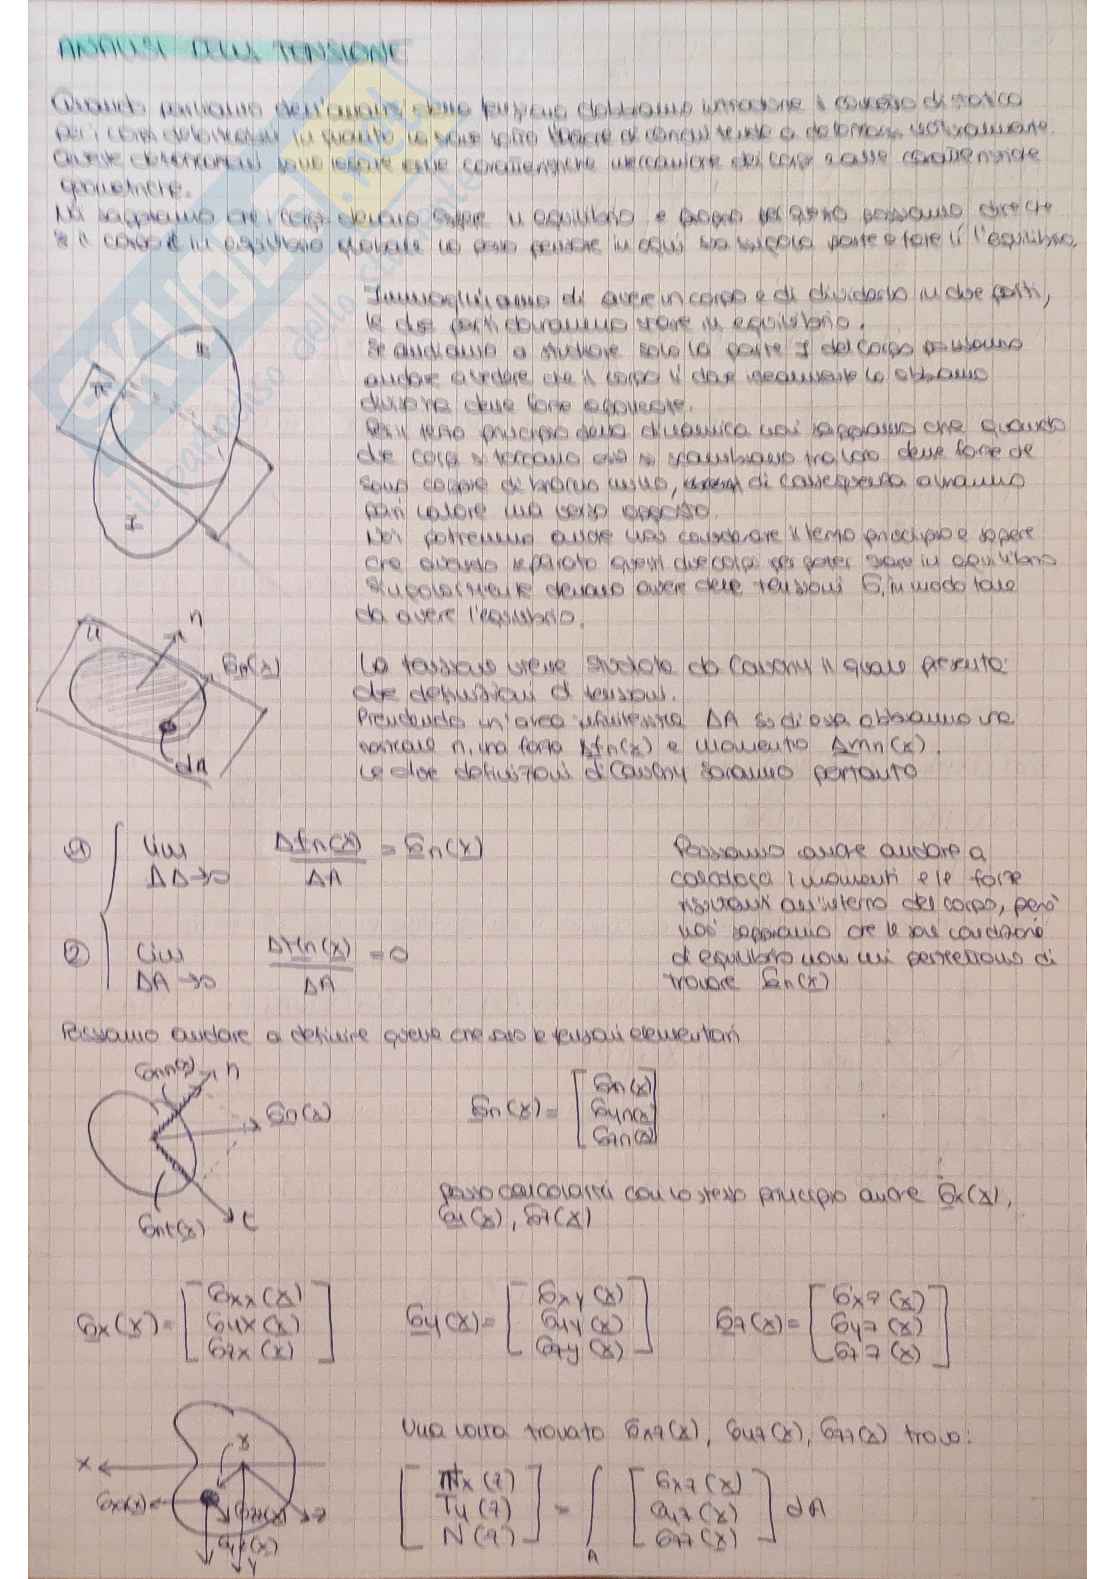 ANALISI DELLA TENSIONE
Quando parliamo dell'analisi della tensione dobbiamo introdurre il concetto di statica
per i corpi deformabili in quanto
alle caratteristiche meccaniche dei corpi e alle caratteristiche
geometriche.
Noi sappiamo che i corpi devono stare in equilibrio e proprio per questo possiamo dire che
se il corpo è in equilibrio globale lo posso pensare in ogni sua singola parte e fare lì l'equilibrio.
Immaginiamo di avere un corpo e di dividerlo in due parti,
le due parti dovranno stare in equilibrio.
Se andiamo a studiare solo la parte I del corpo possiamo
andare a vedere che il corpo lì dove idealmente lo abbiamo
diviso ha delle forze
Per il terzo principio della dinamica noi sappiamo che quando
due corpi si toccano essi si scambiano tra loro delle forze che
sono coppie di di conseguenza avranno
pari valore ma verso opposto.
Noi potremmo anche non considerare il terzo principio e sapere
che avendo separato questi due corpi per poter stare in equilibrio
singolarmente devono avere delle tensioni σ, in modo tale
da avere l'equilibrio.
II
π
I
π
n
σn(x)
dA
La tensione viene studiata da Cauchy il quale presenta
due definizioni di tensioni.
Prendendo un'area infinitesima ΔA su di essa abbiamo una
normale n, una forza Δfn(x) e momento Δmn(x).
Le due definizioni di Cauchy saranno pertanto
① lim ΔA→0 Δfn(x)/ΔA = σn(x)
② lim ΔA→0 ΔMn(x)/ΔA = 0
Possiamo anche andare a
calcolarci i momenti e le forze
risultanti all'interno del corpo, però
noi sappiamo che le sole condizioni
di equilibrio non mi permettono di
trovare σn(x)
Possiamo andare a definire quelle che sono le tensioni elementari
σnn(x) n
σn(x)
σnt(x) t
σn(x) = [σxn(x) σyn(x) σzn(x)]
posso calcolarmi con lo stesso principio anche σx(x),
σy(x), σz(x)
σx(x) = [σxx(x) σyx(x) σzx(x)] σy(x) = [σxy(x) σyy(x) σzy(x)] σz(x) = [σxz(x) σyz(x) σzz(x)]
x
x
σxz(x) σzz(x) z
σyz(x) y
Una volta trovato σxz(x), σyz(x), σzz(x) trovo:
[Tx(z) Ty(z) N(z)] = ∫A [σxz(x) σyz(x) σzz(x)] dA
SKUOLA.net
il paradiso dello studente